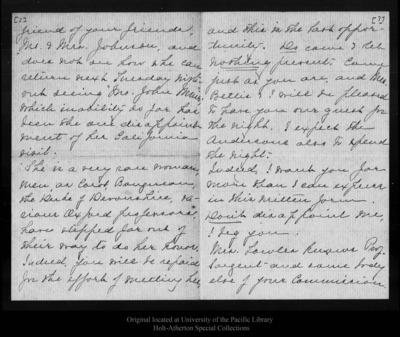 [2]
friend of your friends,
Mr. & Mrs. Johnson, and
does not see how she can
return next Tuesday with-
out seeing Mr. John Muir,
which inability so far has
been the one disappoint-
ment of her California
visit.
She is a very rare woman,
men, as Carol,
the Duke of Devonshire, va-
rious Oxford professors,
have stepped far out of
their way to do her honor.
Indeed, you will be repaid
for the effort of meeting her
[3]
and this is the last oppor-
tunity. Do come & let
nothing prevent. Come
just as you are, and Mrs
Bettie & I will be pleased
to have you our guest for
the night. I expect the
Andersons also to spend
the night.
Indeed, I want you far
more than I can express
in this written form.
Don't disappoint me,
I beg you.
Mrs. Lawler knows Prof.
Sargent and some body
else of your Commission
Original located at University of the Pacific Library
Holt-Atherton Special Collections